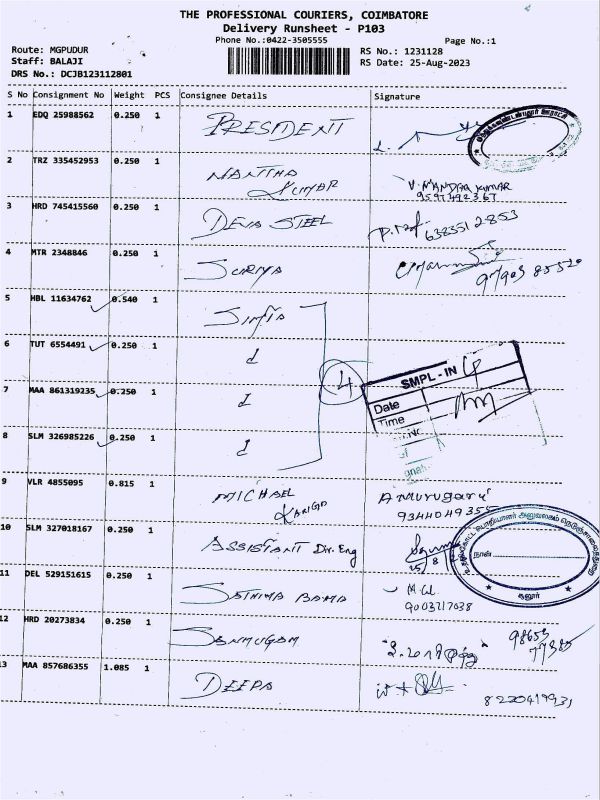 THE PROFESSIONAL COURIERS, COIMBATORE
Delivery Runsheet - P103
Phone No.:0422-3505555 Page No.:1
Route: MGPUDUR RS No.: 1231128
Staff: BALAJI RS Date: 25-Aug-2023
DRS No.: DCJB123112801
S No Consignment No Weight PCS Consignee Details Signature
1 EDQ 25988562 0.250 1 PRESIDENT
2 TRZ 335452953 0.250 1 NANTHA KUMAR V. NANDHA KUMAR
3 HRD 745415560 0.250 1 DEVA STEEL 6383512853
4 MTR 2348846 0.250 1 SURIYA
5 HBL 11634762 0.540 1
6 TUT 6554491 0.250 1
4
SMPL - IN
7 MAA 861319235 0.250 1
Date
Time
8 SLM 326985226 0.250 1
9 VLR 4855095 0.815 1 MICHAEL A Murugan
9344049355
10 SLM 327018167 0.250 1 ASSISTANT Div. Eng 25/8
நான்
11 DEL 529151615 0.250 1 SATHIYA BAMA
9003217038
12 HRD 20273834 0.250 1 SANMUGAM
13 MAA 857686355 1.085 1 DEEPA
8220419931